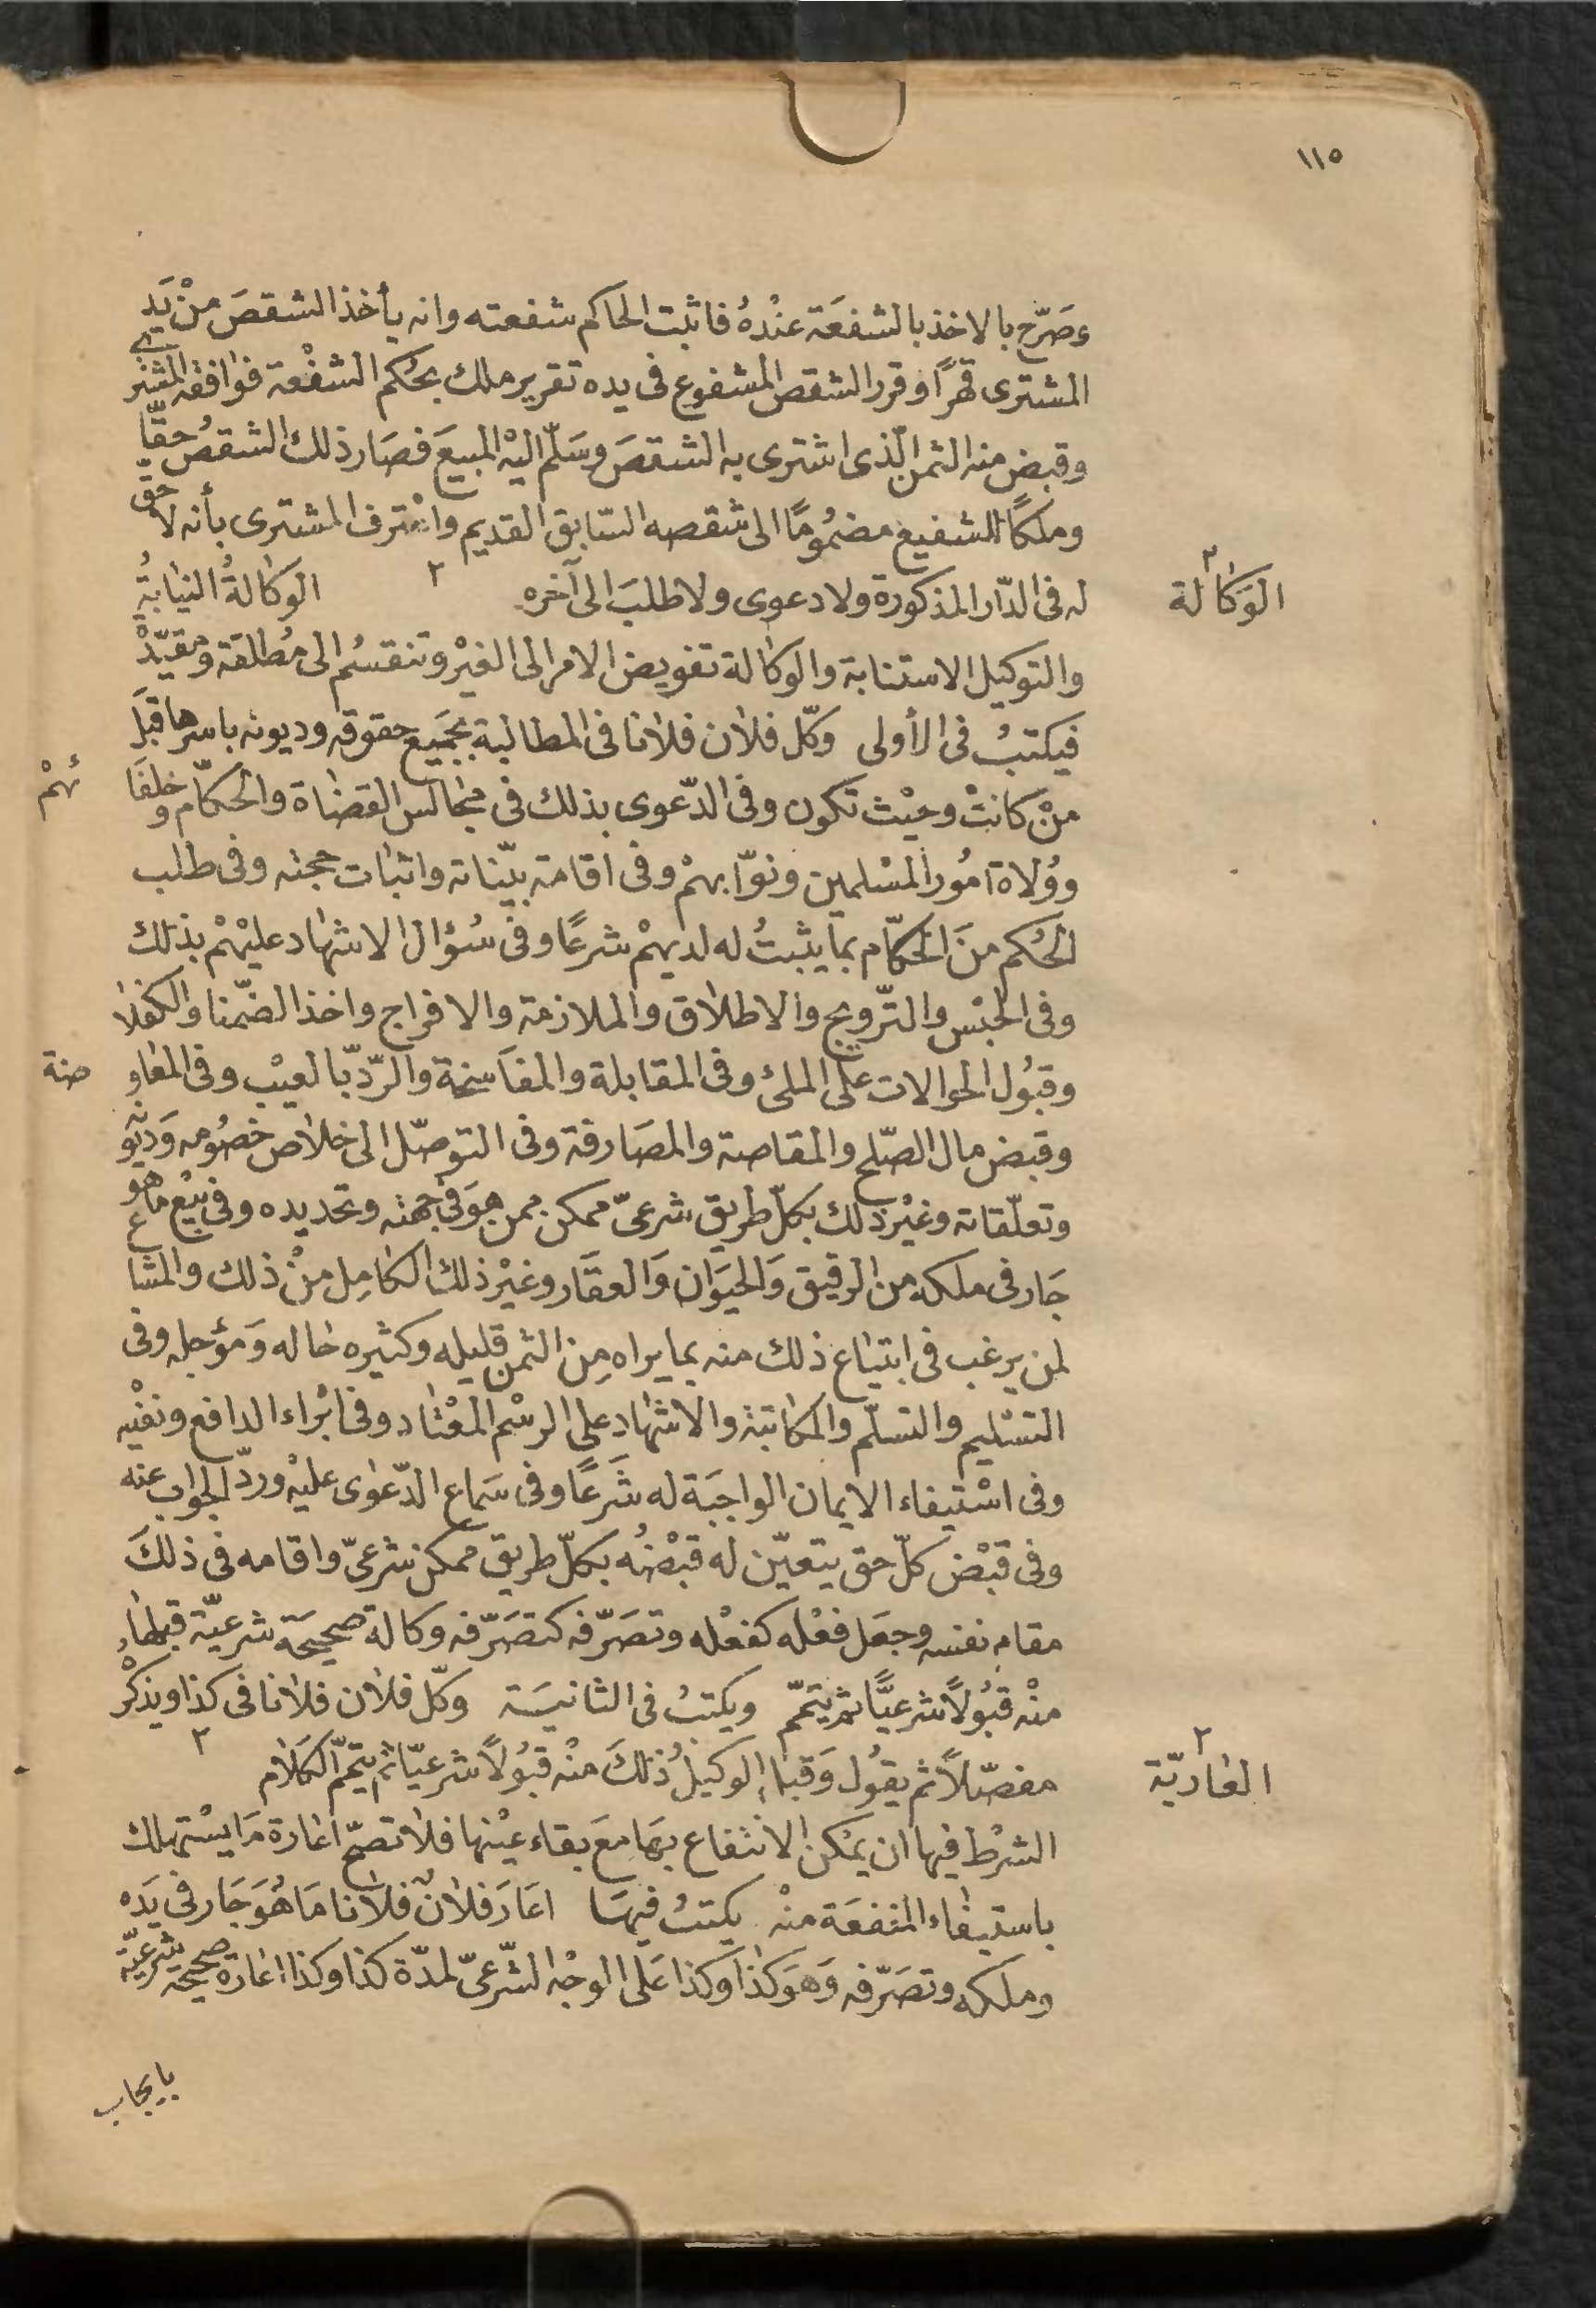 ١١٥
وصَرّح بالاخذ بالشفعَة عنْدهُ فاثبت الحاكم شفعته وانه يأخذ الشقصَ منْ يَدِ
المشترى قهرًا وقرر الشقص المشفوع فى يده تقرير ملك بحُكم الشفْعة فوافقه المشترى
وقبض منه الثمن الّذى اشترى به الشقصَ وسَلّم اليْه المبيَع فصَار ذلك الشقصُ حقّا
وملكًا للشفيع مضمُومًا الى شقصه السّابق القديم واعْترف المشترى بأنه لا حقّ
له فى الدّار المذكورة ولا دعوى ولا طلبَ الى آخره ٢ الوكالةُ النيابةُ
الوَكالة ٢
والتوكيل الاستنابة والوكالة تفويض الامر الى الغيْر وتنقسُم الى مُطلقَة ومقيّدْ
فيكتبُ فى الأولى وكّل فلان فلانا فى المطالبة بجَميع حقوقه وديونه باسرها قبَلَ
منْ كانتْ وحيْث تكون وفى الدّعوى بذلك فى مجالس القضاة والحكّام وخلفَا ئهمْ
ووُلاة امُور المسْلمين ونوّابهمْ وفى اقامة بيّناته واثبات حججه وفى طلب
الحُكم منَ الحكّام بما يثبتُ له لديهمْ شرعًا وفى سُؤال الاشهاد عليْهمْ بذلك
وفى الحبْس والتّرويج والاطلاق والملازمة والافراج واخذ الضّمنا والكفلا
وقبُول الحوالات على الملئ وفى المقابلة والمفاَسخة والرّدّ بالعيْب وفى المعاو ضة
وقبض مال الصّلح والمقاصة والمصَارفة وفى التوصّل الى خلاص خصُومه وَديونه
وتعلّقاته وغيْر ذلك بكلّ طريق شرعىّ ممكن ممن هوَ فى جهته وتحديده وفى بيْع ما هو
جَار فى ملكه من الرقيق وَالحيَوَان وَالعقَار وغيْر ذلك الكامِل منْ ذلك والمشاع
لمن يرغب فى ابتياع ذلك منه بما يراه مِن الثمن قليله وكثيره حاله وَمؤجله وفى
التسْليم والتسلّم والمكاتبة والاشهاد على الرسْم المعْتاد وفى ابْراء الدافع ونفيْه
وفى اسْتيفاء الايمان الواجبَة له شَرعًا وفى سَماع الدّعوى عليْه وردّ الجواب عنه
وفى قبْض كلّ حق يتعيّن له قبْضُه بكلّ طريق ممكن شرعىّ واقامه فى ذلكَ
مقام نفسه وجعَل فعْله كفعْله وتصَرّفه كتصَرّفه وكالة صحيحَة شرعيّة قبلها
منْه قبُولاً شرعيًّا ثم يتممّ ويكتبُ فى الثانيَة وكّل فلان فلانا فى كذا ويذكْر
مفصّلاً ثم يقُول وَقبل الوكيلُ ذلكَ منْه قبُولاً شرعيّا ثم يتممّ الكلام ٢
العاريّة ٢
الشرْط فيها ان يمْكن الانتفاع بهَا معَ بقاء عيْنها فلا تصحّ اعارة مَا يسْتهلك
باستيفاء المنفعَة منْه يكتبُ فيهَا اعَارَ فلانٌ فلانا مَا هُوَ جَار فى يَده
وملكه وتصَرّفه وَهوَ كذا وكذا عَلى الوجْه الشّرعىّ لمدّة كذا وكذا اعارة صحيحة شرعيّة
بايجاب